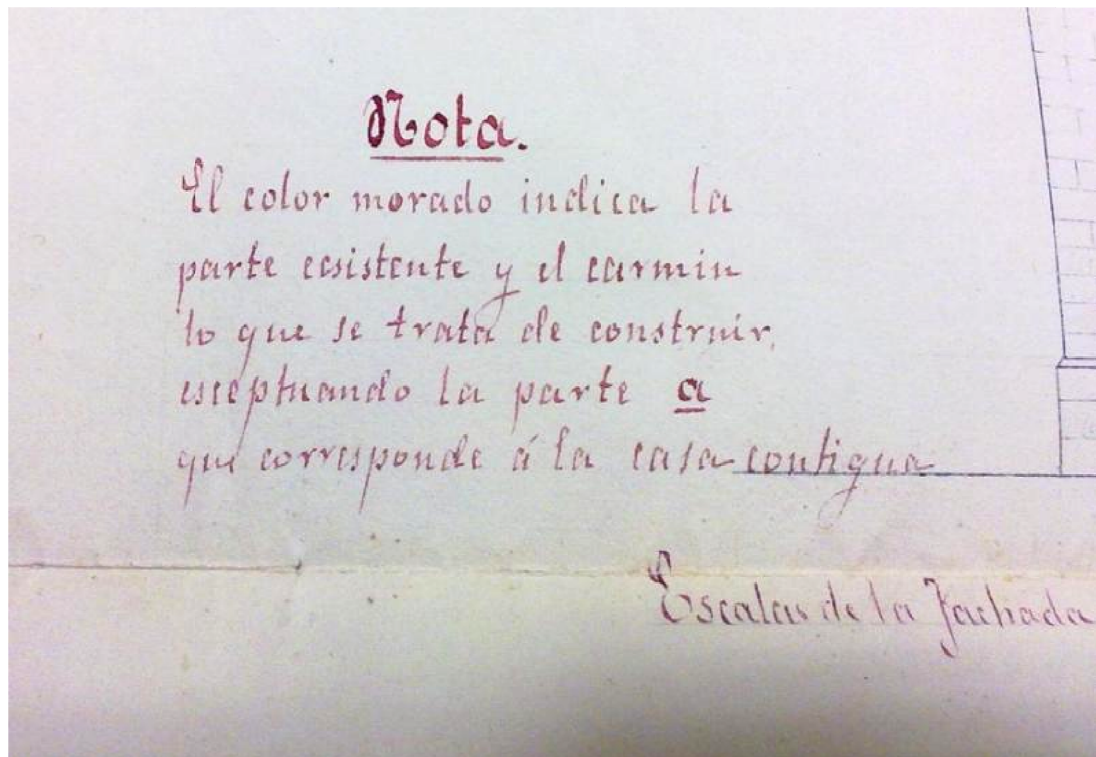 Nota.
El color morado indica la
parte esistente y el carmin
lo que se trata de construir,
esceptuando la parte a
que corresponde á la casa contigua
Escalas de la Fachada